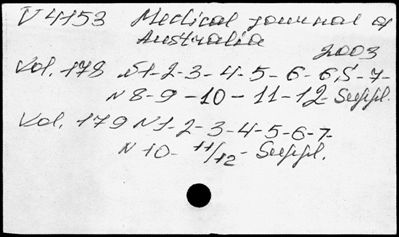 V 4153 Medical journal of
Australia
2003
Vol. 178 N1-2-3-4-5-6-6,S-7-
N8-9-10-11-12-Suppl.
Vol. 179 N1-2-3-4-5-6-7-
N10-11/12-Suppl.